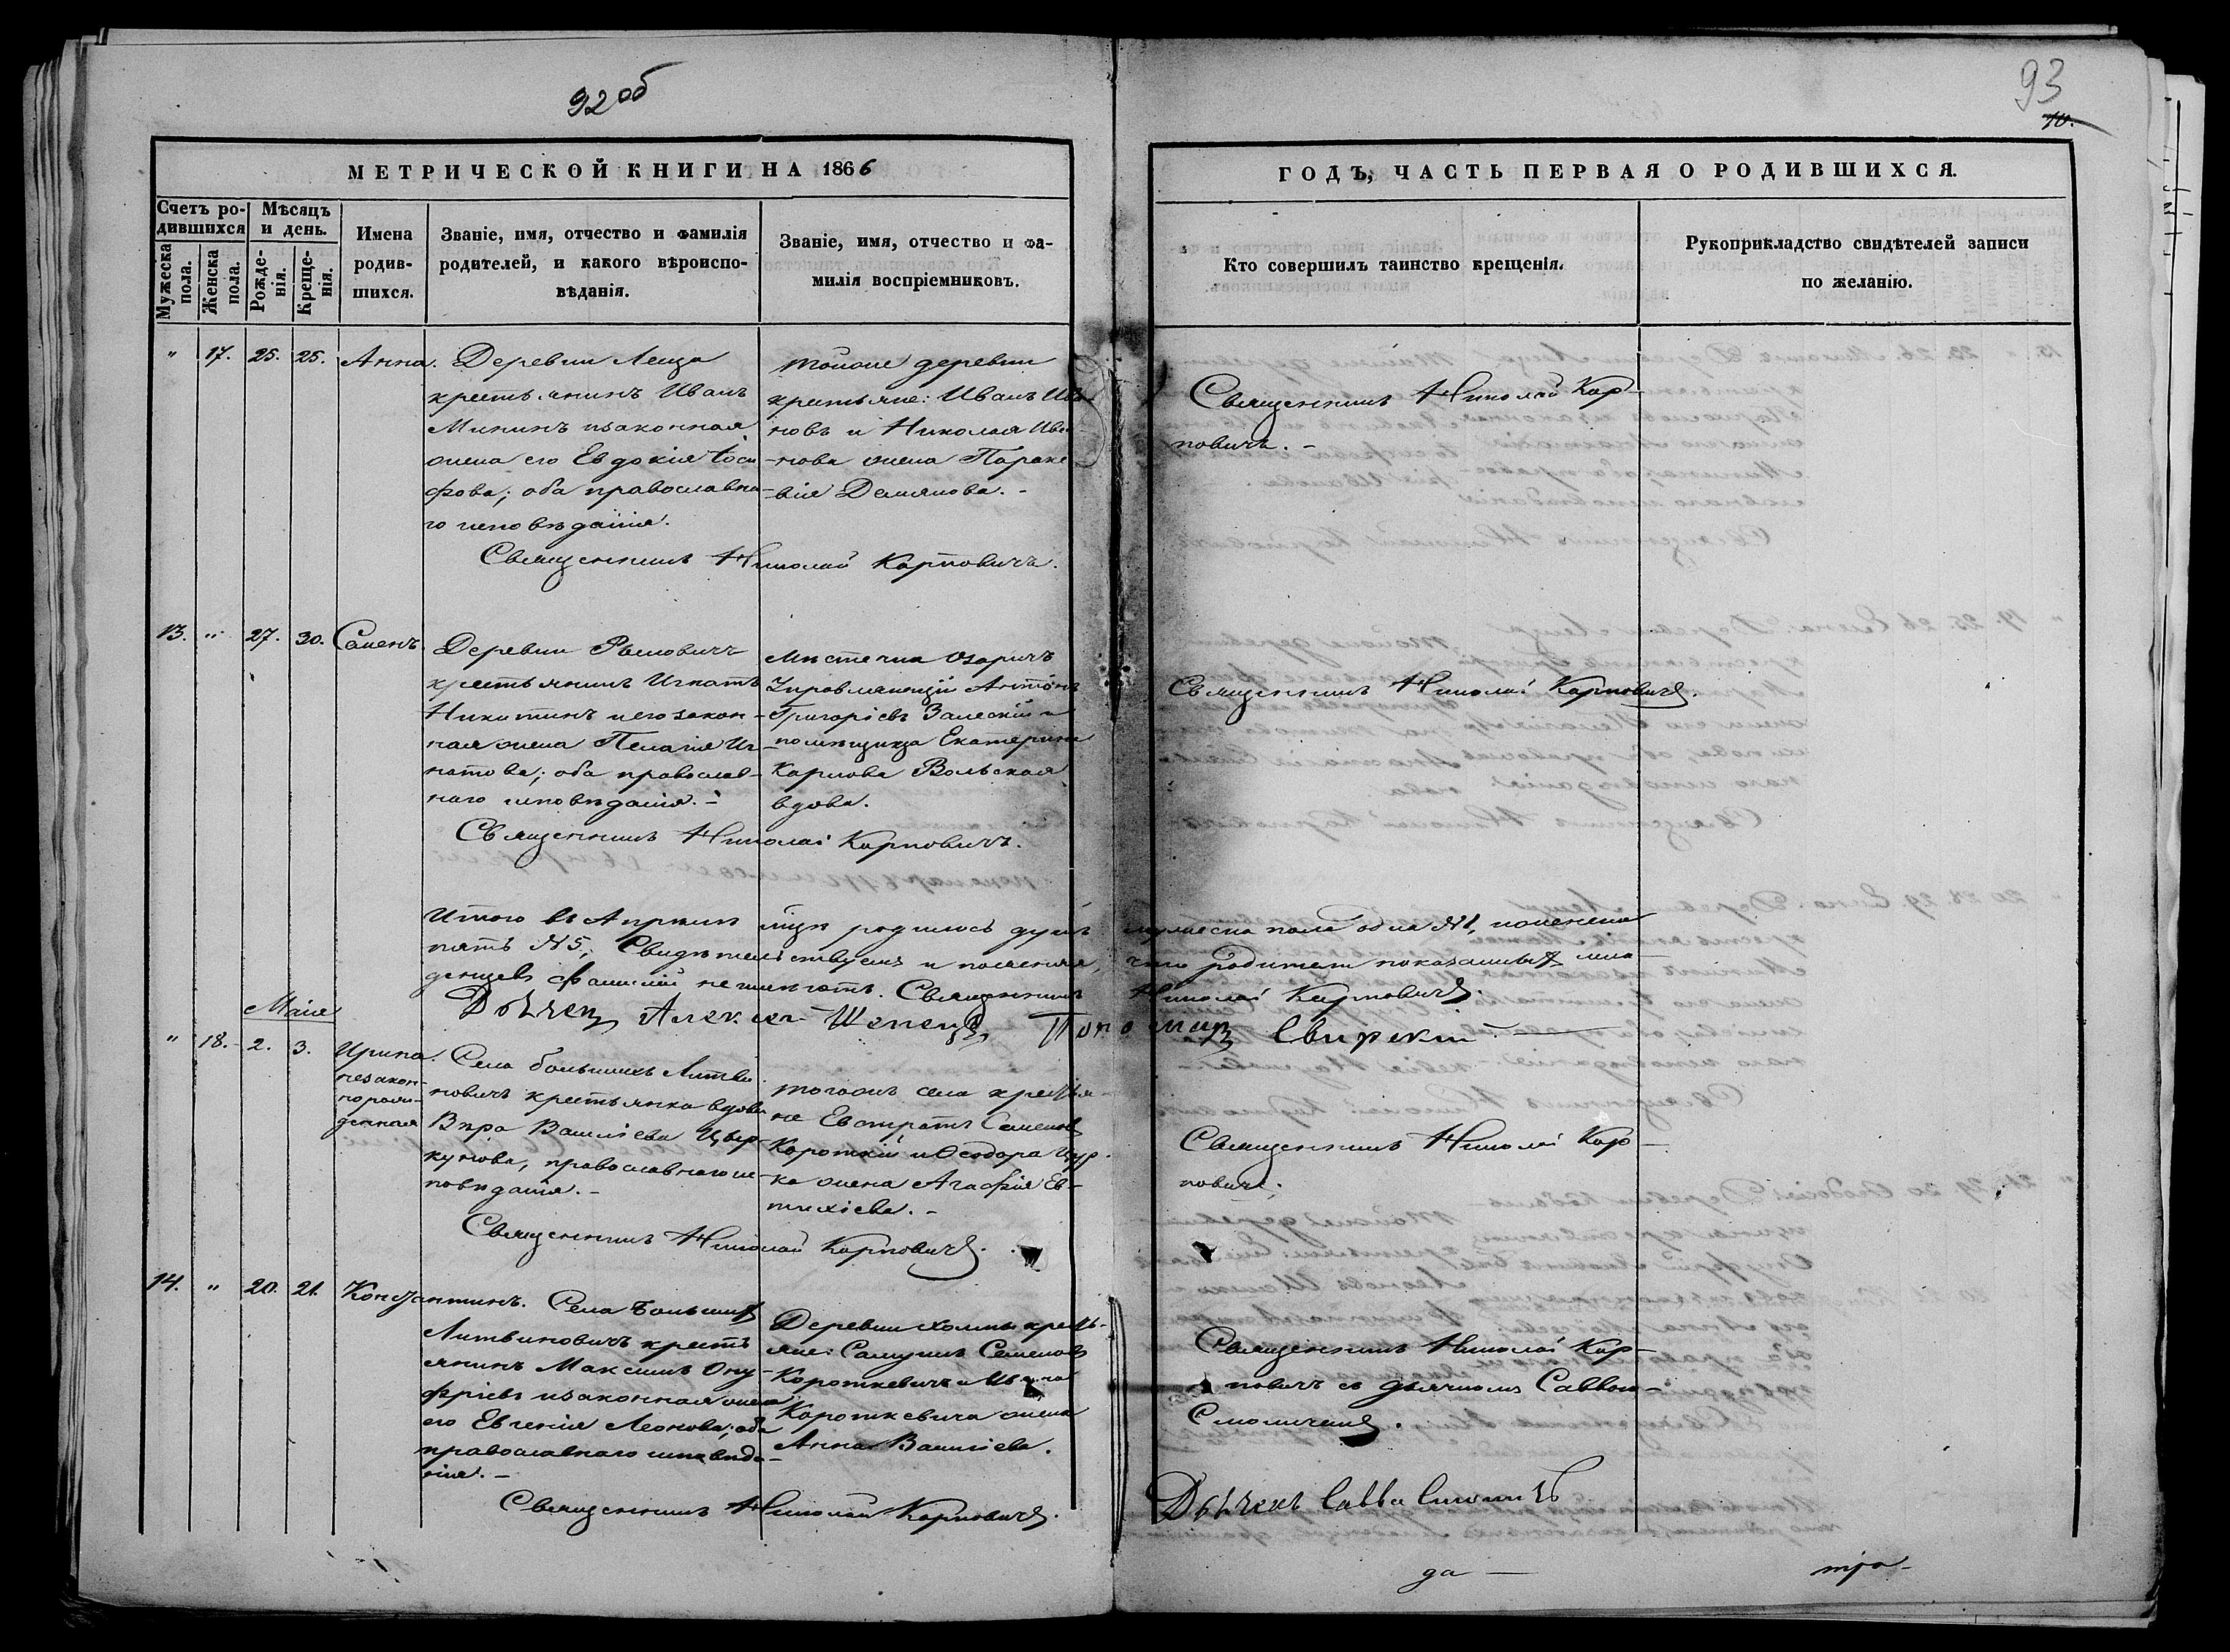 92об
93
10.
МЕТРИЧЕСКОЙ КНИГИ НА 1866
ГОДЪ, ЧАСТЬ ПЕРВАЯ О РОДИВШИХСЯ.
Счетъ родившихся
Мужеска пола.
Женска пола.
Мѣсяцъ и день.
Рожденія.
Крещенія.
Имена родившихся.
Званіе, имя, отчество и фамилія
родителей, и какого вѣроиспо-
вѣданія.
Званіе, имя, отчество и фа-
милія воспріемниковъ.
Кто совершилъ таинство крещенія.
Рукоприкладство свидѣтелей записи
по желанію.
" 17. 25. 25. Анна.
Деревни Леща
крестьянинъ Иванъ
Мининъ и законная
жена его Евдокія Іоси
фова; оба православна-
го исповѣданія.
тойже деревни
крестьяне: Иванъ Ива-
новъ и Николая Ива-
нова жена Параске
вія Демянова. -
Священникъ Николай Карповичъ.
Священникъ Николай Кар-
повичъ. -
13. " 27. 30. Семенъ.
Деревни
крестьянинъ Игнатъ
Никитинъ и его закон-
ная жена Пелагія Иг-
натова; оба православ-
наго исповѣданія. -
Мѣстечка Озаричъ
Управляющій Антонъ
Григоріевъ Залескій и
помѣщица Екатерина
Карлова Вольская
вдова.
Священникъ Николай Карповичъ.
Священникъ Николай Карповичъ.
Итого въ Апрѣлѣ мцѣ родилось душъ мужеска пола одна №1, женска
пять №5, Свидѣтельствуемъ и поясняя, что родители показанныхъ мла-
денцевъ фамилій не имѣютъ. Священникъ Николай Карповичъ.
Дьячекъ Алексей Шепецъ Пономарь Свирскій.
Маія
" 18. 2. 3. Ирина
незакон-
норож-
денная
Села большихъ Литви
новичъ крестьянка вдова
Вѣра Василіева Цвер-
кунова, православнаго ис-
повѣданія. -
тогожъ села крестья-
не Евстратъ Семеновъ
Короткій и Ѳеодора Цур-
ка жена Агафія Ев-
тихіева. -
Священникъ Николай Карповичъ.
Священникъ Николай Кар-
повичъ.
14. " 20. 21. Константинъ.
Села Большихъ
Литвиновичъ кресть
янинъ Максимъ Ону-
фріевъ и законная жена
его Евгенія Леонова; оба
православнаго исповѣда-
нія. -
Деревни Холмы кресть-
яне: Самуилъ Семеновъ
Короткевичъ и Ивана
Короткевича жена
Анна Василіева.
Священникъ Николай Карповичъ.
Священникъ Николай Кар-
повичъ съ дьячкомъ Саввою
Смоличемъ.
Дьячекъ Савва Смоличъ
да - тра-